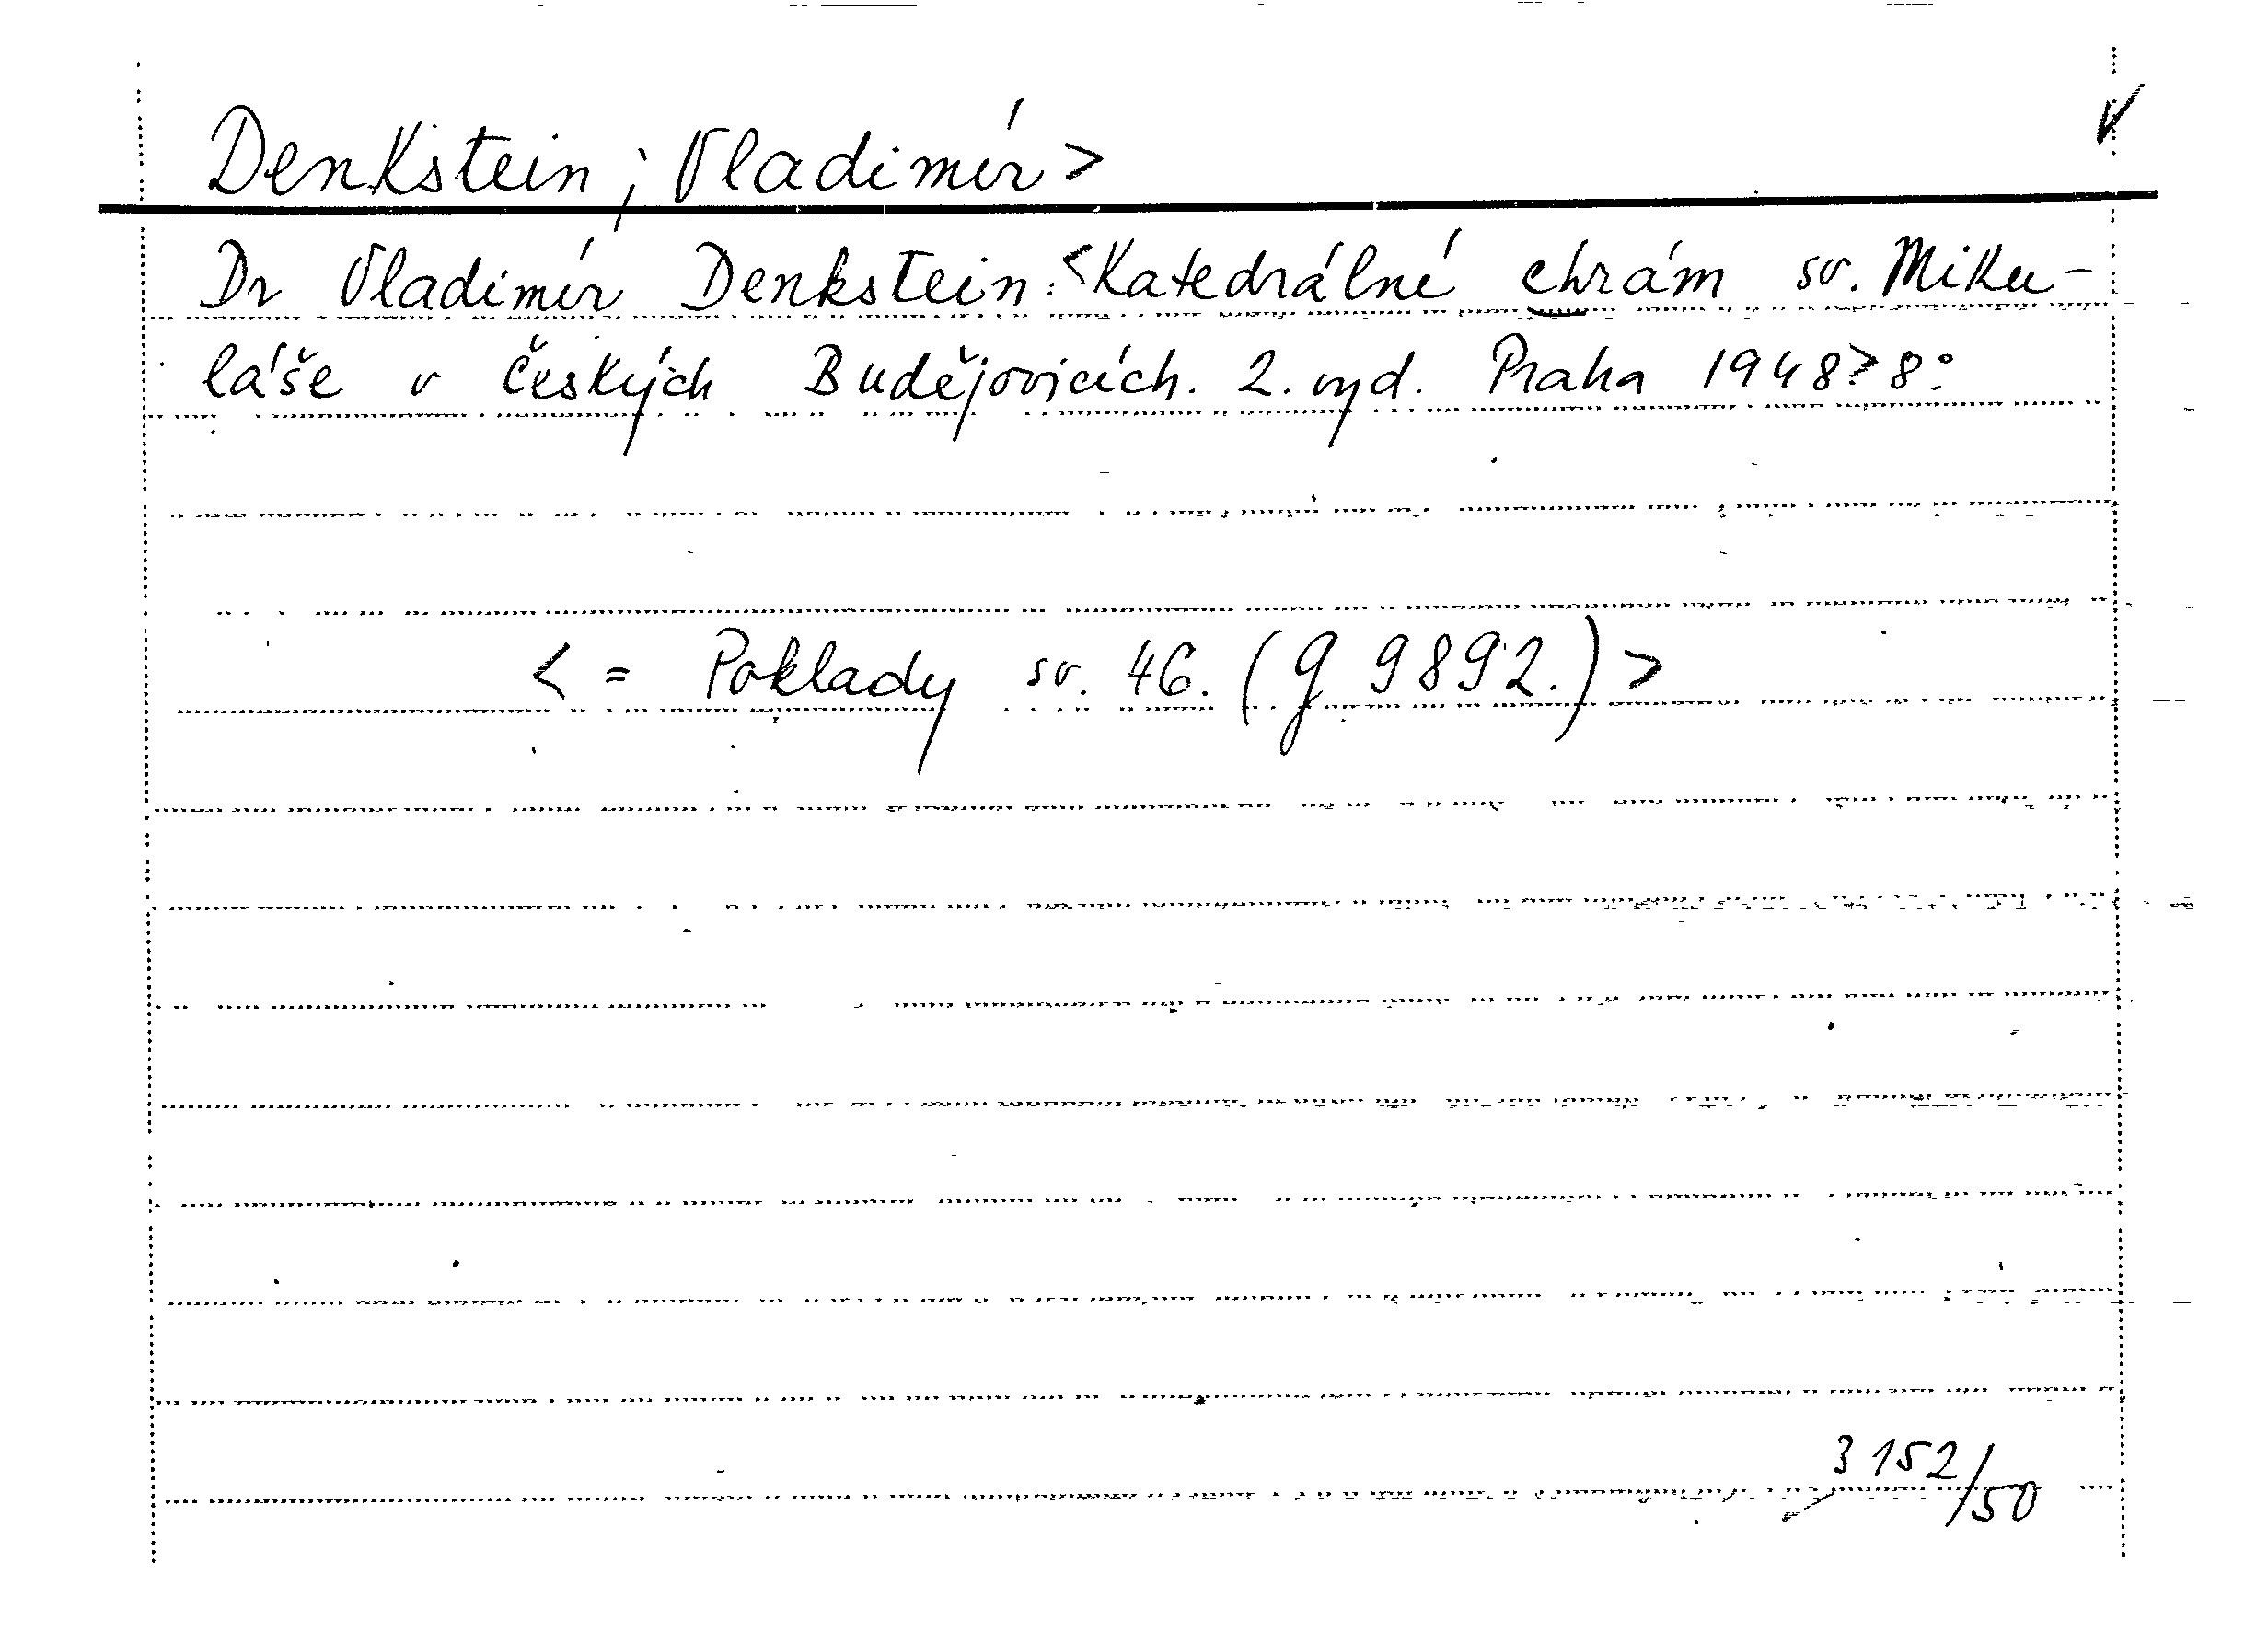 Denkstein, Vladimír>
Dr Vladimír Denkstein: <Katedrální chrám sv. Miku-
láše v Českých Budějovicích. 2. vyd. Praha 1948> 8°
< = Poklady sv. 46. (g 9892.) >
3152/50